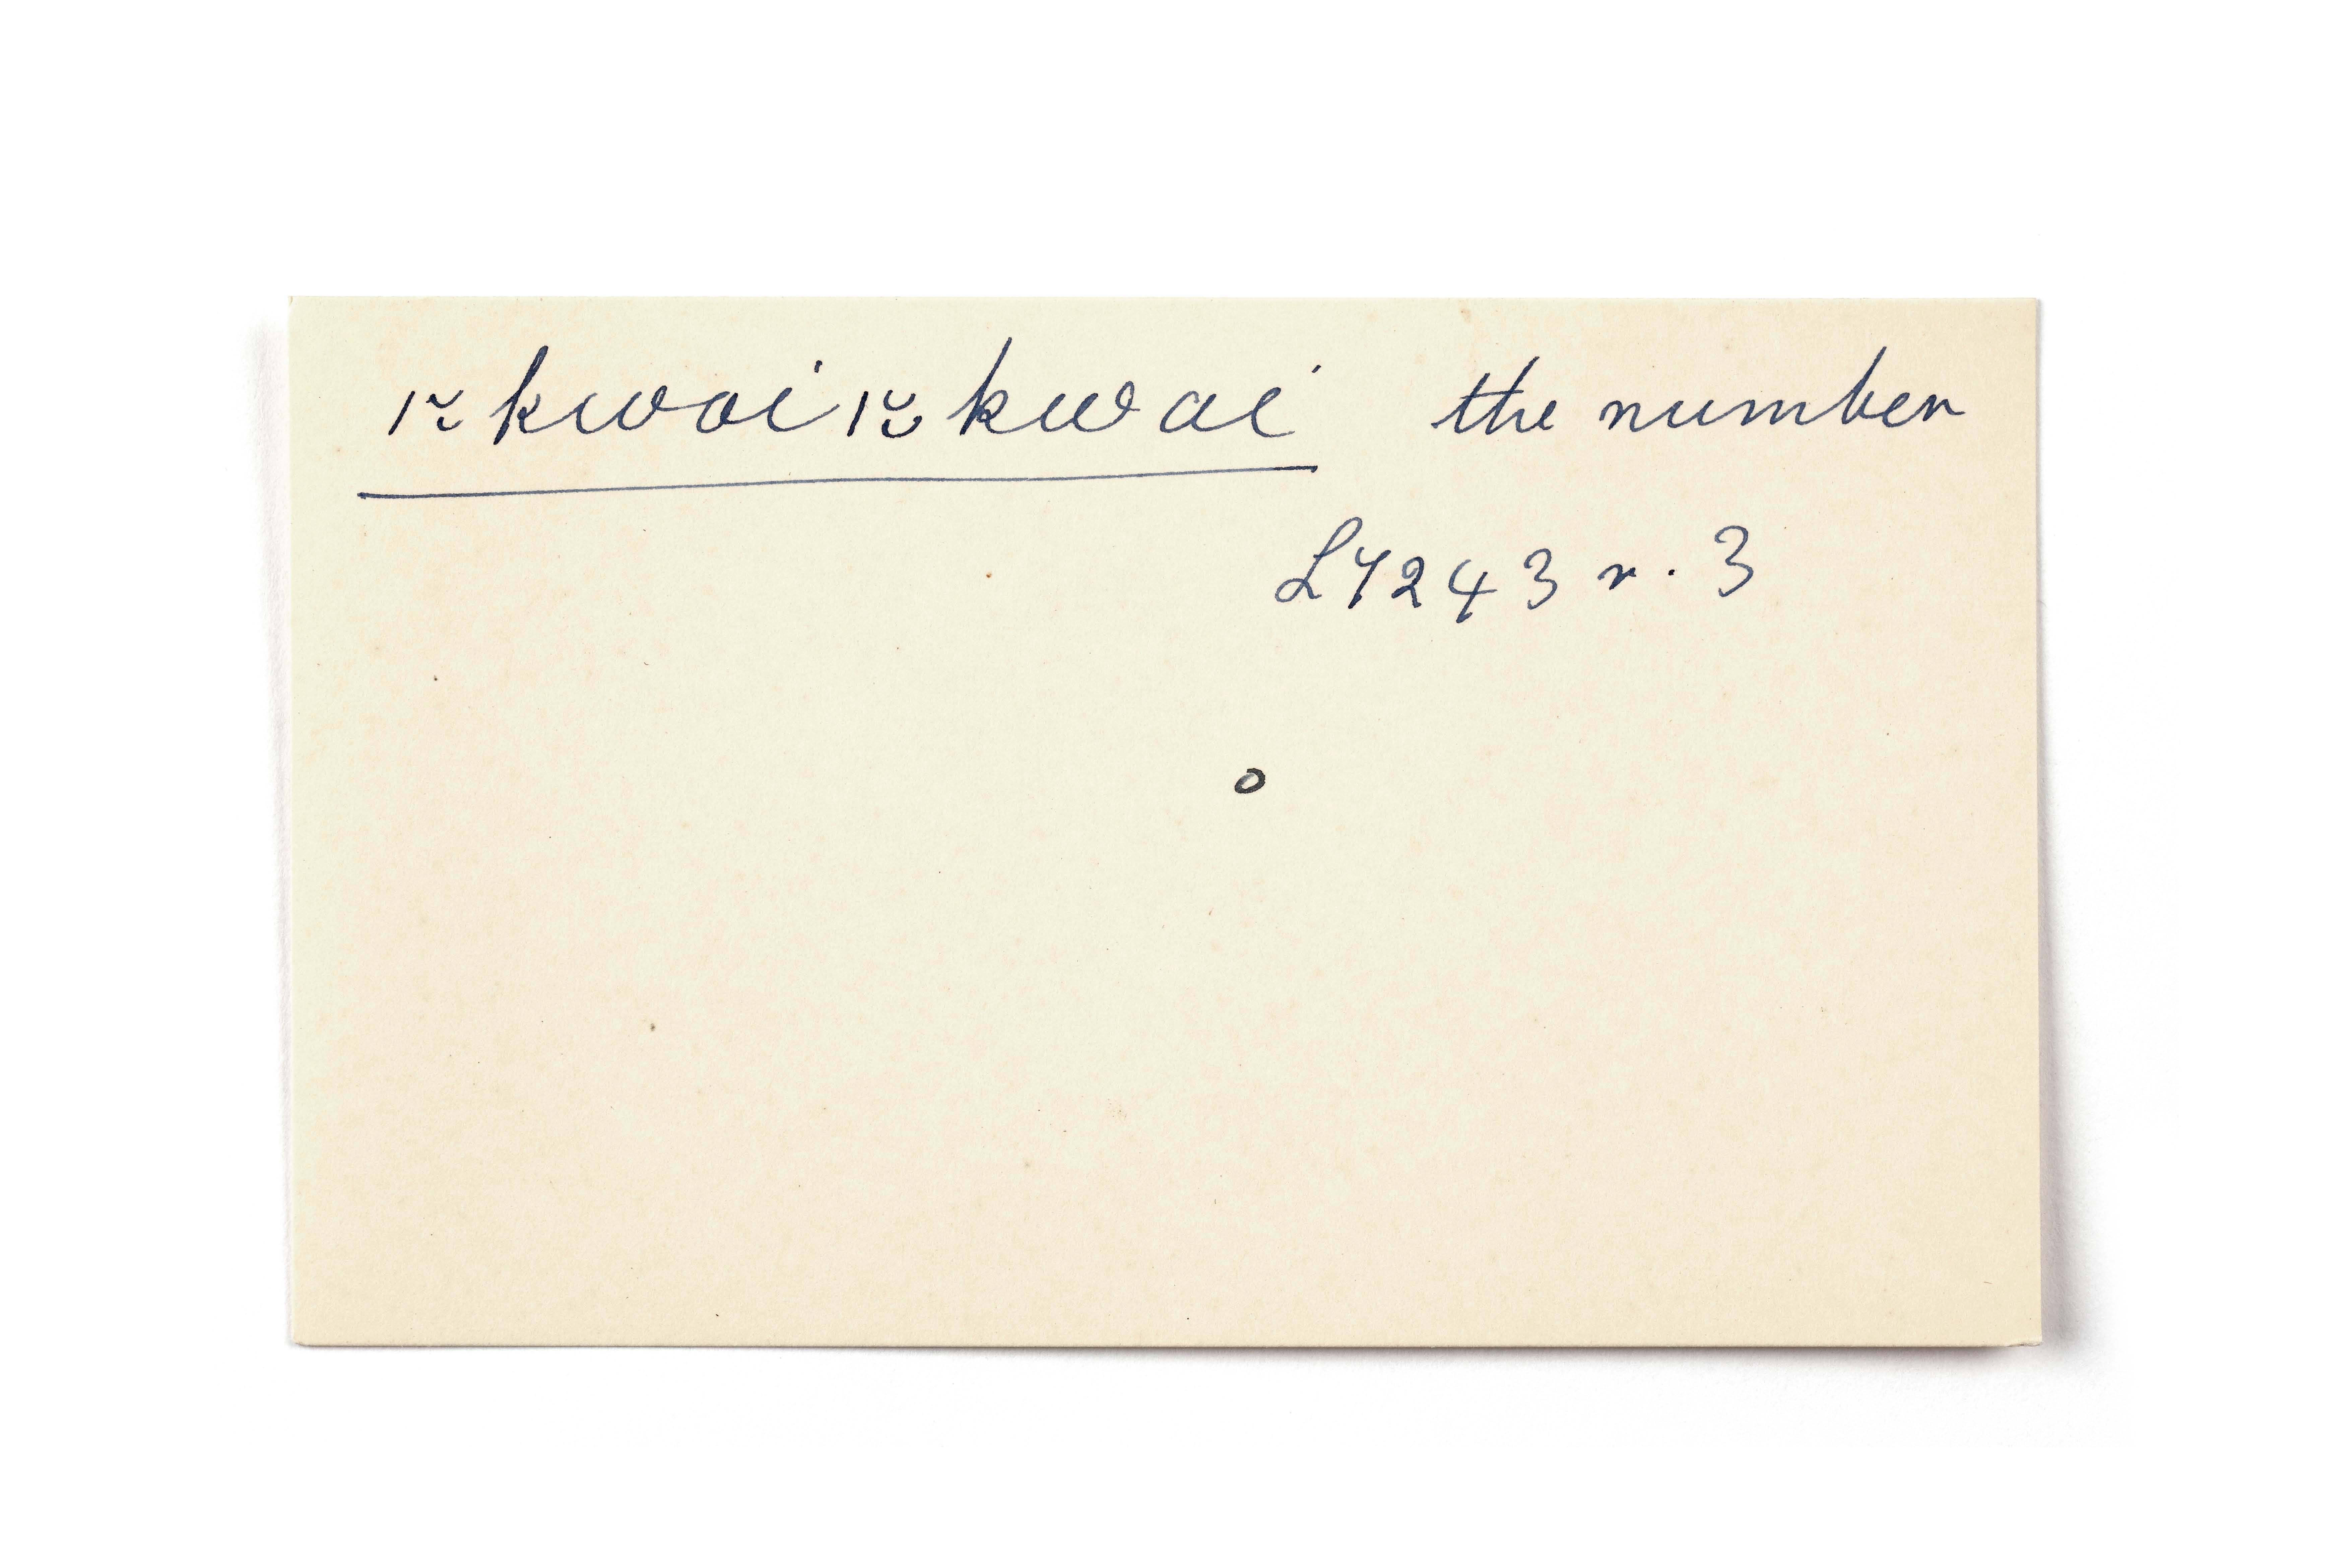 /~kwai/~kwai the number
L7243 r. 3